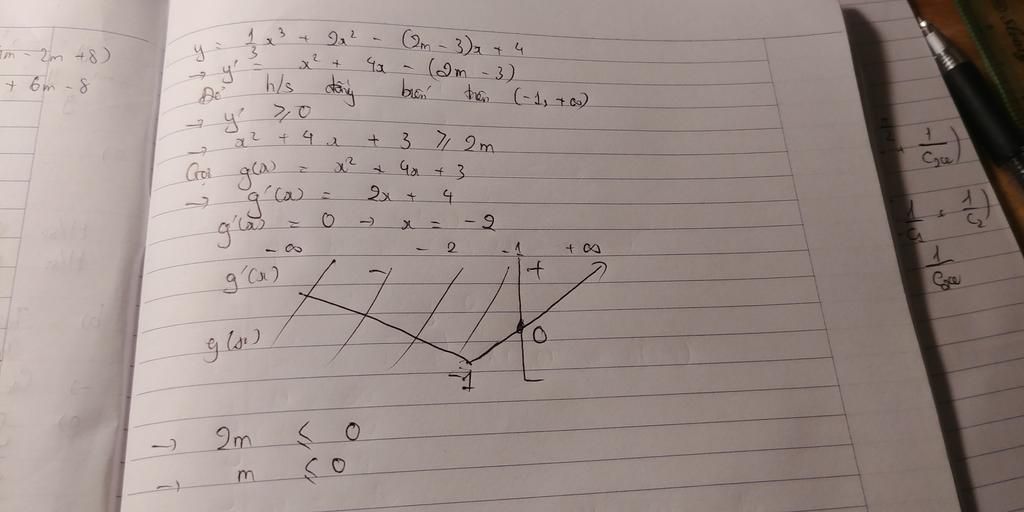 m - 2m + 8)
+ 6m - 8
y = 1/3 x³ + 2x² - (2m - 3)x + 4
→ y' = x² + 4x - (2m - 3)
Để h/s đồng biến trên (-1, +∞)
→ y' ≥ 0
→ x² + 4x + 3 ≥ 2m
Gọi g(x) = x² + 4x + 3
→ g'(x) = 2x + 4
g'(x) = 0 → x = -2
-∞ -2 -1 +∞
g'(x) - +
g(x) 0
-1
→ 2m ≤ 0
→ m ≤ 0